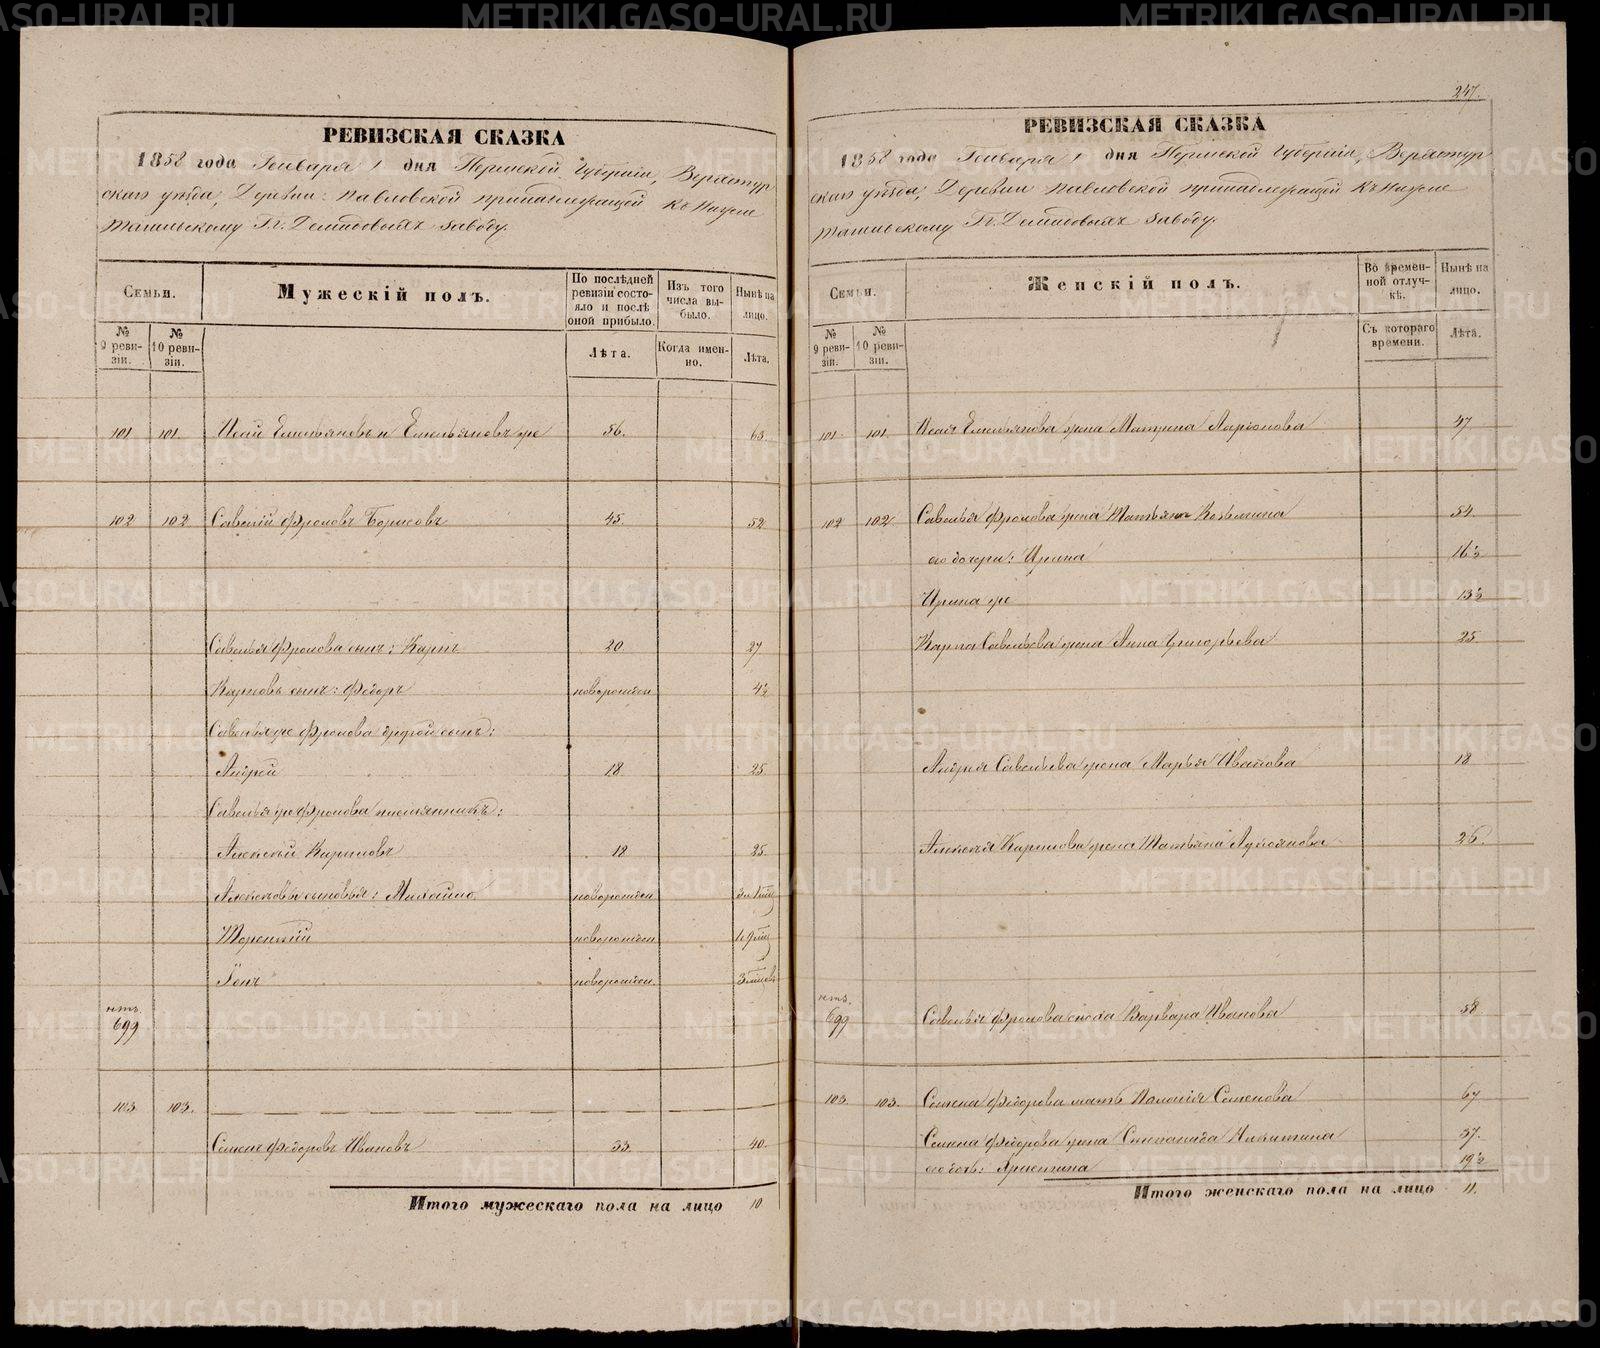 247.
РЕВИЗСКАЯ СКАЗКА
1858 года Генваря 1 дня Пермской Губернiи, Верхотур
скаго уѣзда, Деревни: Павловской принадлежащей къ Нижне
тагильскому Гг. Демидовыхъ заводу.
Семьи.
Мужескiй полъ.
По послѣдней ревизiи состояло и послѣ оной прибыло.
Изъ того числа выбыло.
Нынѣ на лицо.
№ 9 ревизiи.
№ 10 ревизiи.
Лѣта.
Когда именно.
Лѣта.
101 101. Исай Емельяновъ Емельяновъ же 56. 63.
102 102 Савелiй Фроловъ Борисовъ 45. 52
Савелья Фролова сынъ: Карпъ 20 27
Карповъ сынъ: Федоръ новорожден 4½
Савелья же Фролова другой сынъ:
Андрей 18 25.
Савелья же Фролова племянникъ:
Алексѣй Кариловъ 18 25.
Алексѣевы сыновья: Михайло новорожден
Терентiй новорожден
новорожден.
699
103 103.
Семенъ Федоровъ Ивановъ 33. 40.
Итого мужескаго пола на лицо 10
РЕВИЗСКАЯ СКАЗКА
1858 года Генваря 1 дня Пермской Губернiи, Верхотур
скаго уѣзда, Деревни Павловской принадлежащей къ Нижне
тагильскому Гг. Демидовыхъ заводу.
Семьи.
Женскiй полъ.
Во временной отлучкѣ.
Нынѣ на лицо.
№ 9 ревизiи.
№ 10 ревизiи.
Съ котораго времени.
Лѣта.
101. 101. Исая Емельянова жена Матрена Ларiонова 47
102 102. Савелья Фролова жена Татьяна Козьмина 54.
его дочери: Ирина 16½
Ирина же 13½
Карпа Савельева жена Анна Григорьева 25
Андрея Савельева жена Марья Иванова 18
Алексѣя Карилова жена Татьяна 26.
699 Савелья Фролова сноха Варвара Иванова 58
103. 103. Семена Федорова мать Семенова 67
Семена Федорова жена Степанида Никитина 37.
его дочь: Христина 19½
Итого женскаго пола на лицо 11.
METRIKI.GASO-URAL.RU